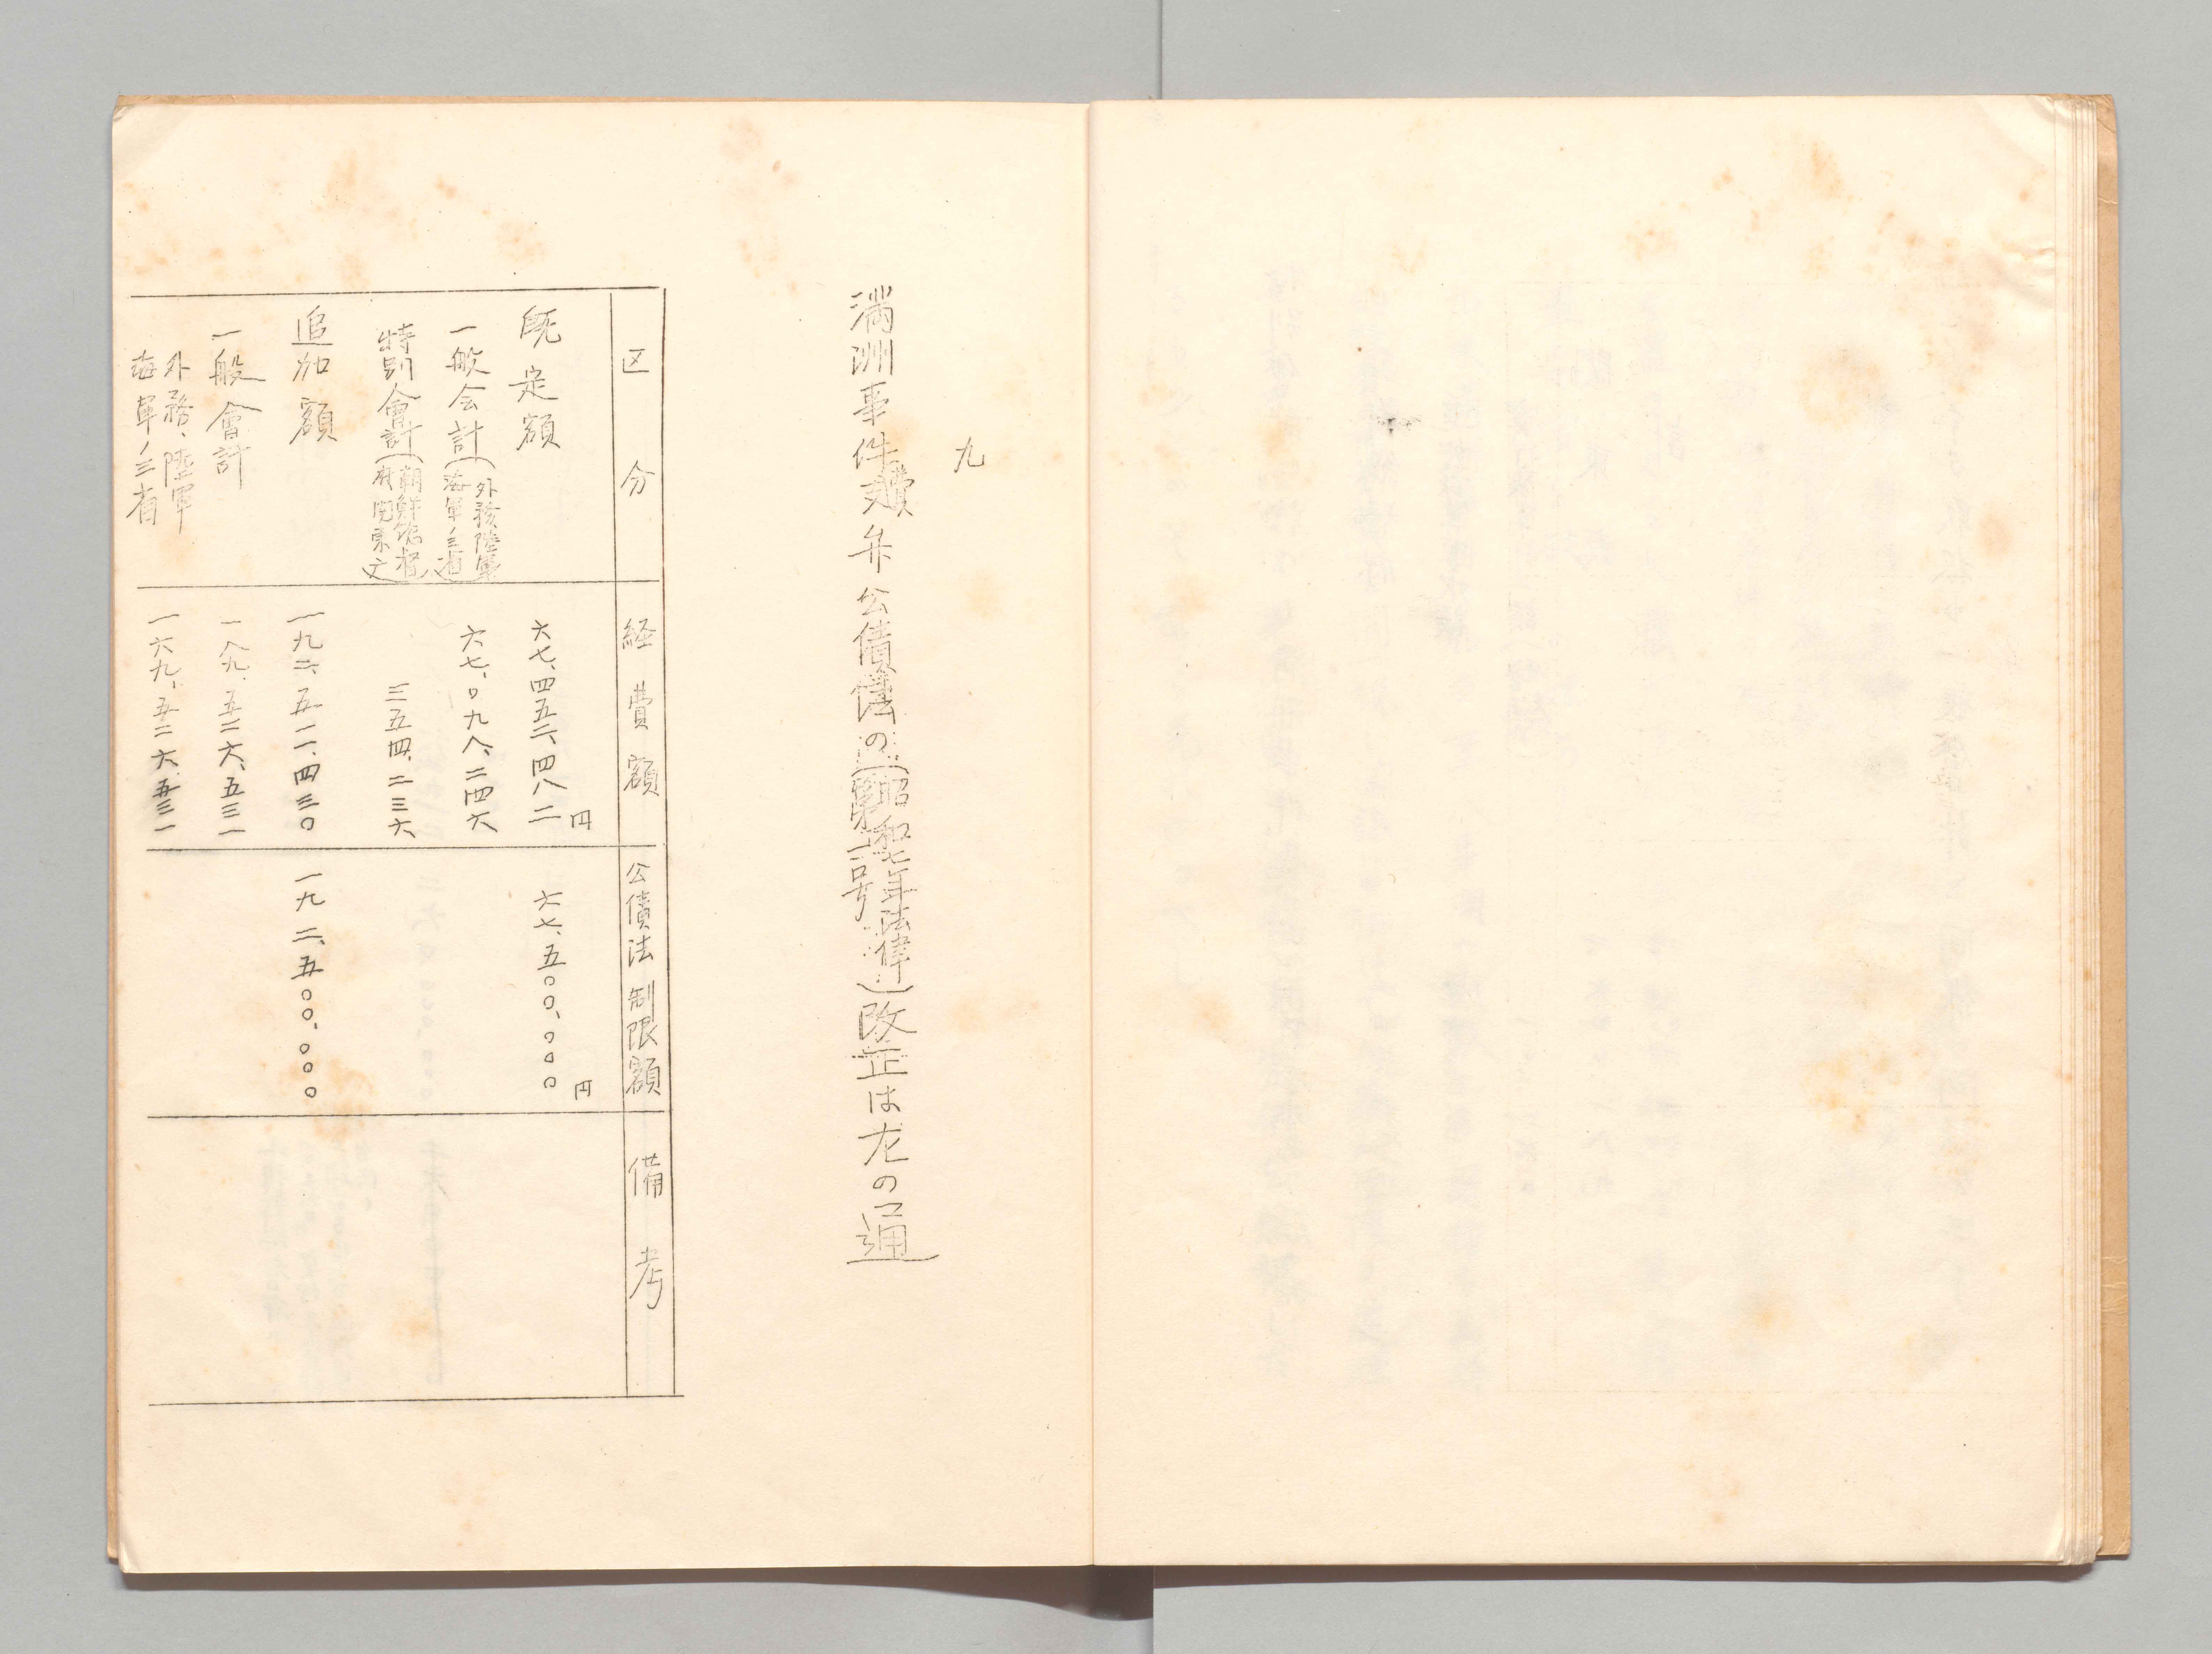 九
満洲事件費支弁公債法の(昭和七年法律第一号)改正は左の通
区分 経費額 公債法制限額 備考
既定額 六七、四五二、四八二円 六七、五〇〇、〇〇〇円
一般会計(外務陸軍海軍ノ三省) 六七、〇九八、二四六
特別會計(朝鮮総督府関東庁) 三五四、二三六
追加額 一九二、五一一、四三〇 一九二、五〇〇、〇〇〇
一般會計 一八九、五二六、五三一
外務、陸軍海軍ノ三省 一六九、五二六、五三一